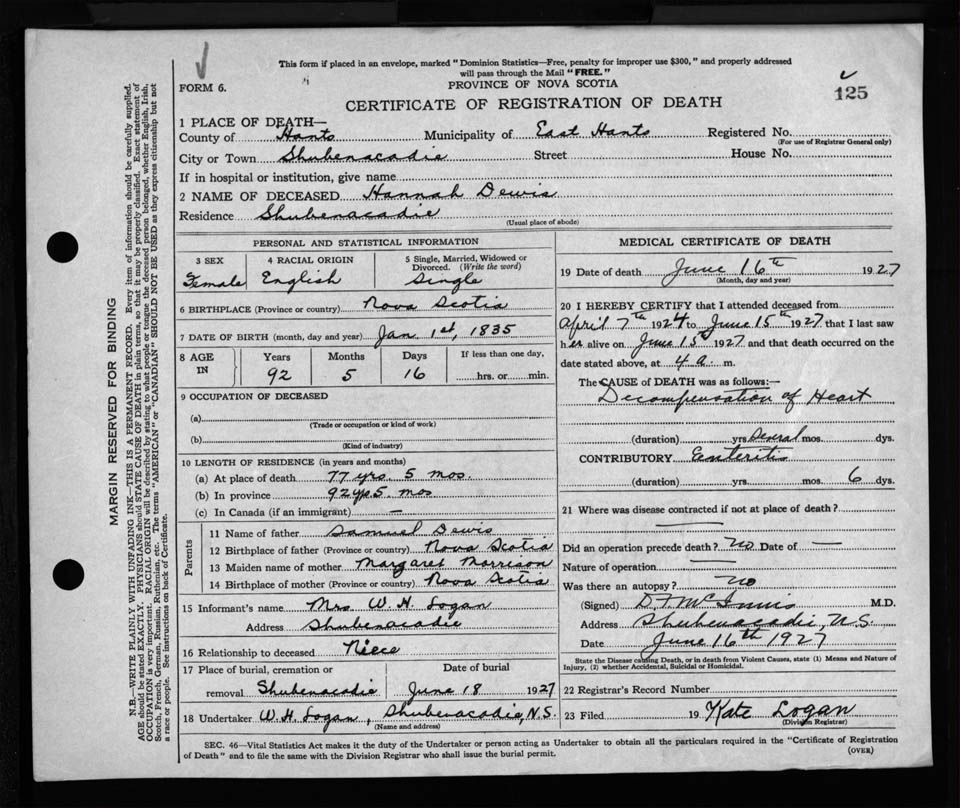 This form if placed in an envelope, marked "Dominion Statistics—Free, penalty for improper use $300," and properly addressed
will pass through the Mail "FREE."
FORM 6.
PROVINCE OF NOVA SCOTIA
CERTIFICATE OF REGISTRATION OF DEATH
125
1 PLACE OF DEATH—
County of Hants Municipality of East Hants Registered No.
(For use of Registrar General only)
City or Town Shubenacadie Street House No.
If in hospital or institution, give name
2 NAME OF DECEASED Hannah Dewis
Residence Shubenacadie
(Usual place of abode)
PERSONAL AND STATISTICAL INFORMATION
3 SEX 4 RACIAL ORIGIN 5 Single, Married, Widowed or
Divorced. (Write the word)
Female English Single
6 BIRTHPLACE (Province or country) Nova Scotia
7 DATE OF BIRTH (month, day and year) Jan 1st, 1835
8 AGE IN Years Months Days If less than one day,
92 5 16 hrs. or min.
9 OCCUPATION OF DECEASED
(a)
(Trade or occupation or kind of work)
(b)
(Kind of industry)
10 LENGTH OF RESIDENCE (in years and months)
(a) At place of death 77 yrs. 5 mos.
(b) In province 92 yrs 5 mos
(c) In Canada (if an immigrant) —
Parents
11 Name of father Samuel Dewis
12 Birthplace of father (Province or country) Nova Scotia
13 Maiden name of mother Margaret Morrison
14 Birthplace of mother (Province or country) Nova Scotia
15 Informant's name Mrs W. H. Logan
Address Shubenacadie
16 Relationship to deceased Niece
17 Place of burial, cremation or Date of burial
removal Shubenacadie June 18 1927
18 Undertaker W. H. Logan, Shubenacadie, N.S.
(Name and address)
MEDICAL CERTIFICATE OF DEATH
19 Date of death June 16th 1927
(Month, day and year)
20 I HEREBY CERTIFY that I attended deceased from
April 7th 1924 to June 15th 1927 that I last saw
her alive on June 15th 1927 and that death occurred on the
date stated above, at 4 a. m.
The CAUSE OF DEATH was as follows:—
Decompensation of Heart
(duration) yrs. mos. dys.
CONTRIBUTORY Enteritis
(duration) yrs. mos. 6 dys.
21 Where was disease contracted if not at place of death?
—
Did an operation precede death? no Date of —
Nature of operation —
Was there an autopsy? no
(Signed) D. F. McInnis M.D.
Address Shubenacadie, N.S.
Date June 16th 1927
State the Disease causing Death, or in death from Violent Causes, state (1) Means and Nature of
Injury, (2) whether Accidental, Suicidal or Homicidal.
22 Registrar's Record Number
23 Filed 19 Kate Logan
(Division Registrar)
SEC. 46—Vital Statistics Act makes it the duty of the Undertaker or person acting as Undertaker to obtain all the particulars required in the "Certificate of Registration
of Death" and to file the same with the Division Registrar who shall issue the burial permit.
(OVER)
MARGIN RESERVED FOR BINDING
N.B.—WRITE PLAINLY WITH UNFADING INK—THIS IS A PERMANENT RECORD. Every item of information should be carefully supplied.
AGE should be stated EXACTLY. PHYSICIANS should STATE CAUSE OF DEATH in plain terms, so that it may be properly classified. Exact statement of
OCCUPATION is very important. RACIAL ORIGIN will be described by stating to what people or tongue the deceased person belonged, whether English, Irish,
Scotch, French, German, Russian, Ruthenian, etc. The terms "AMERICAN" or "CANADIAN" SHOULD NOT BE USED as they express citizenship but not
a race or people. See instructions on back of Certificate.